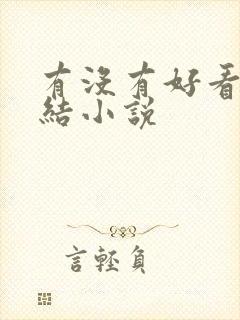 有沒有好看
結小說
言輕負